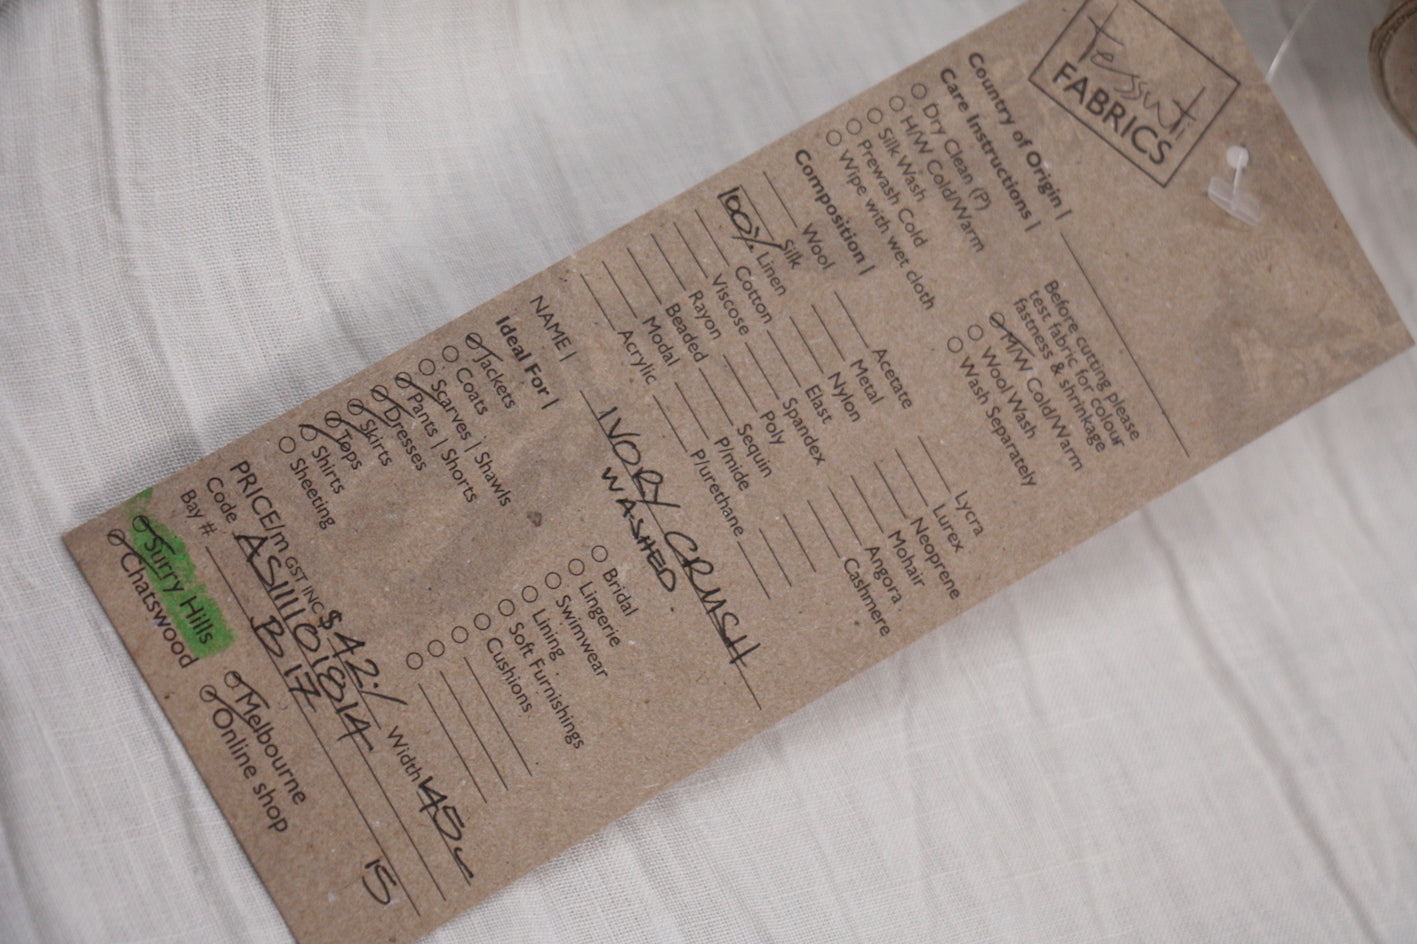 tessuti
FABRICS
Country of Origin |
Care Instructions |
Dry Clean (P)
H/W Cold/Warm
Silk Wash
Prewash Cold
Wipe with wet cloth
Before cutting please
test fabric for colour
fastness & shrinkage
M/W Cold/Warm
Wool Wash
Wash Separately
Composition |
Wool
Silk
100% Linen
Cotton
Viscose
Rayon
Beaded
Modal
Acrylic
Acetate
Metal
Nylon
Elast
Spandex
Poly
Sequin
P/mide
P/urethane
Lycra
Lurex
Neoprene
Mohair
Angora
Cashmere
NAME | IVORY CRUSH
WASHED.
Ideal For |
Jackets
Coats
Scarves | Shawls
Pants | Shorts
Dresses
Skirts
Tops
Shirts
Sheeting
Bridal
Lingerie
Swimwear
Lining
Soft Furnishings
Cushions
PRICE/m GST INC $42./ Width 145
Code ASIII1101814
Bay # B 17 15
Surry Hills
Chatswood
Melbourne
Online shop